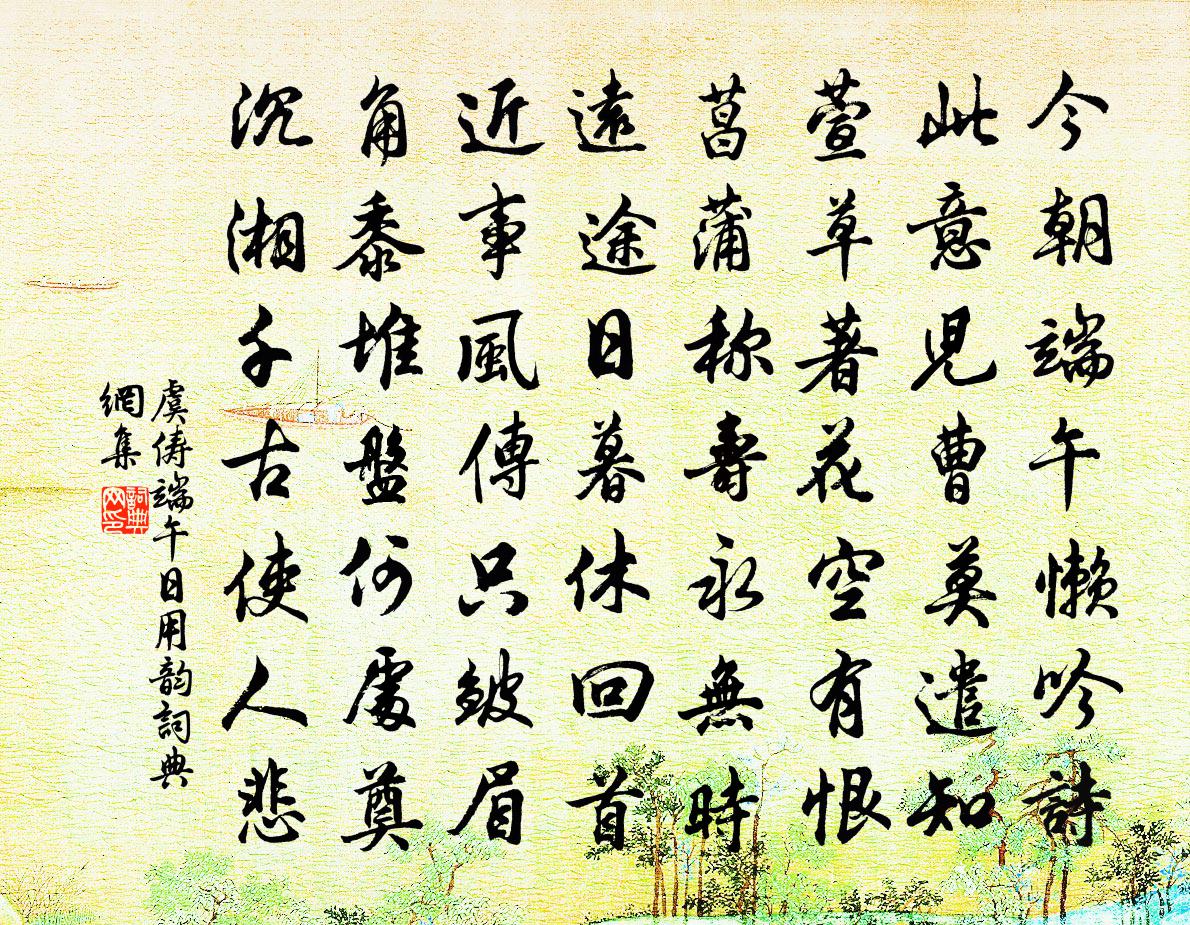 今朝端午懒吟詩
此意兒曹莫遣知
萱草著花空有恨
菖蒲称壽永無時
遠途日暮休回首
近事風傳只皺眉
角黍堆盤何處奠
沉湘千古使人悲
虞俦端午日用韵詞典
網集
詞典
网印